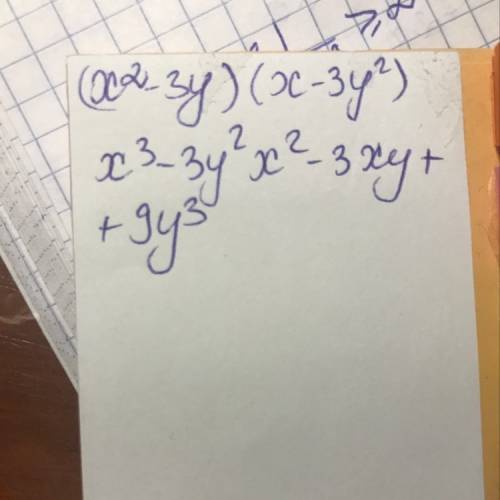 (x² - 3y) (x - 3y²)
x³ - 3y² x² - 3xy +
+ 9y³